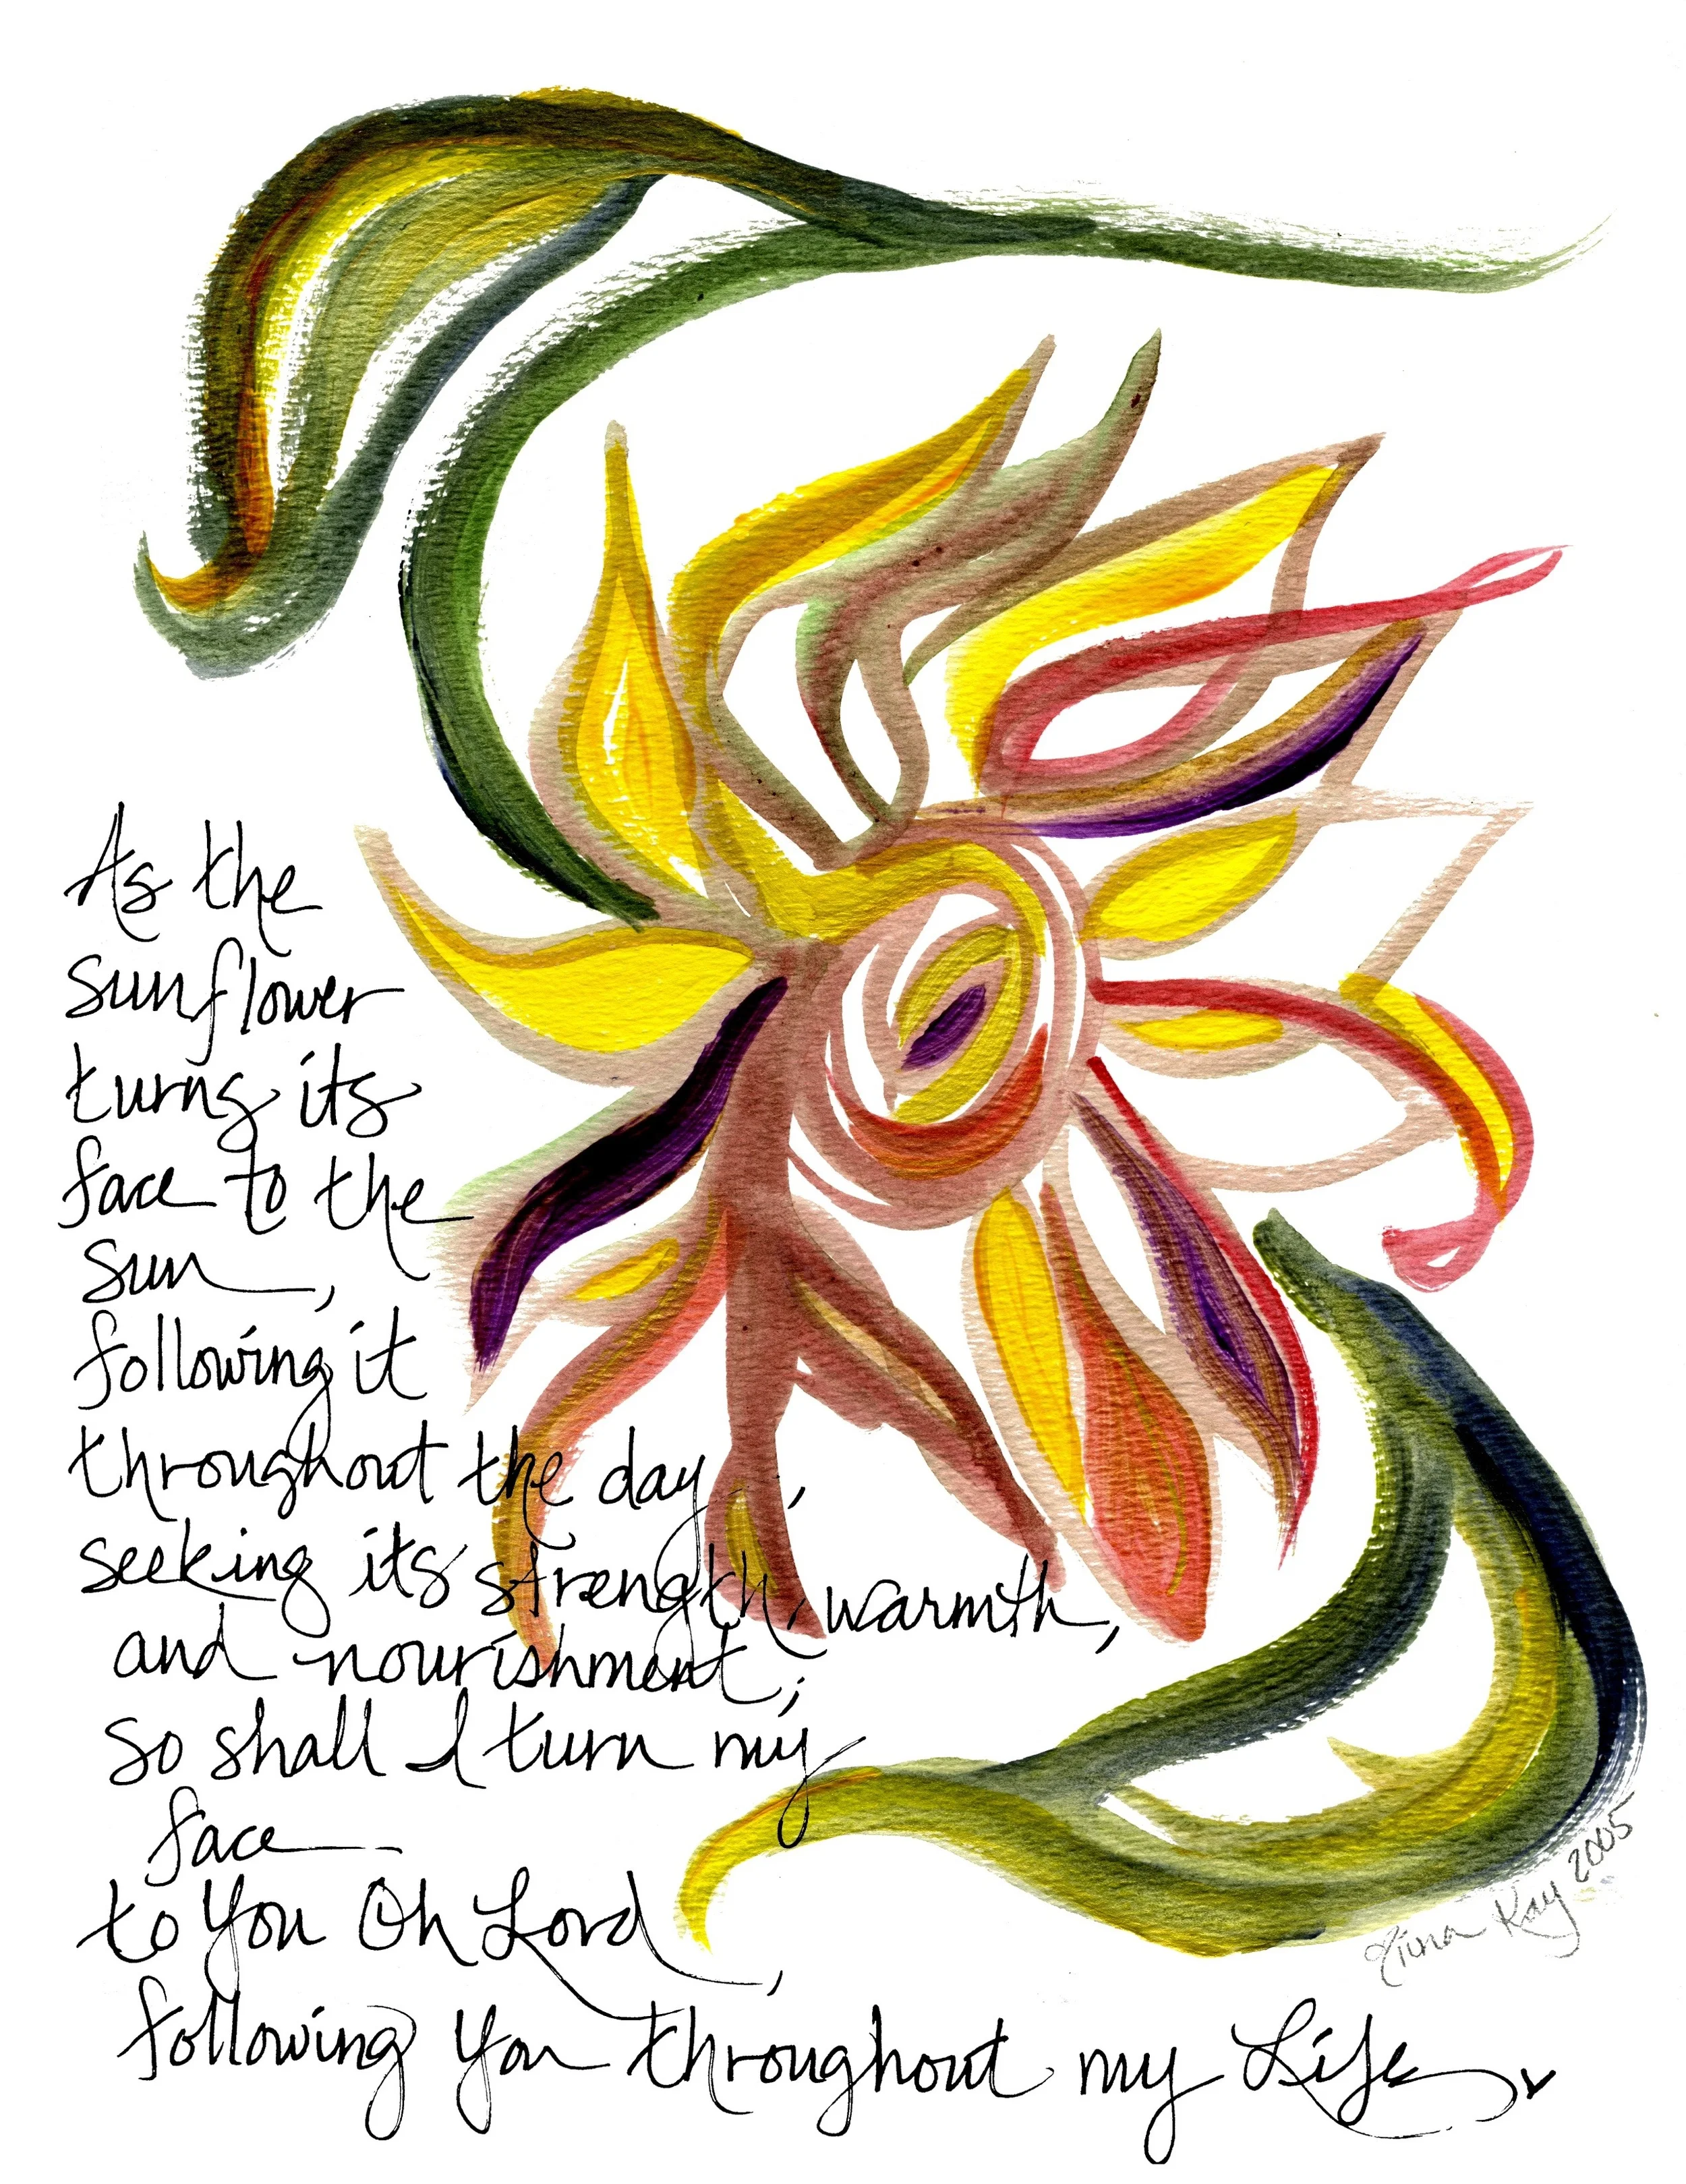 As the
sunflower
turns its
face to the
sun,
following it
throughout the day,
seeking its strength, warmth,
and nourishment;
so shall I turn my
face
to You Oh Lord,
following You throughout my Life
Tiina Kay 2005